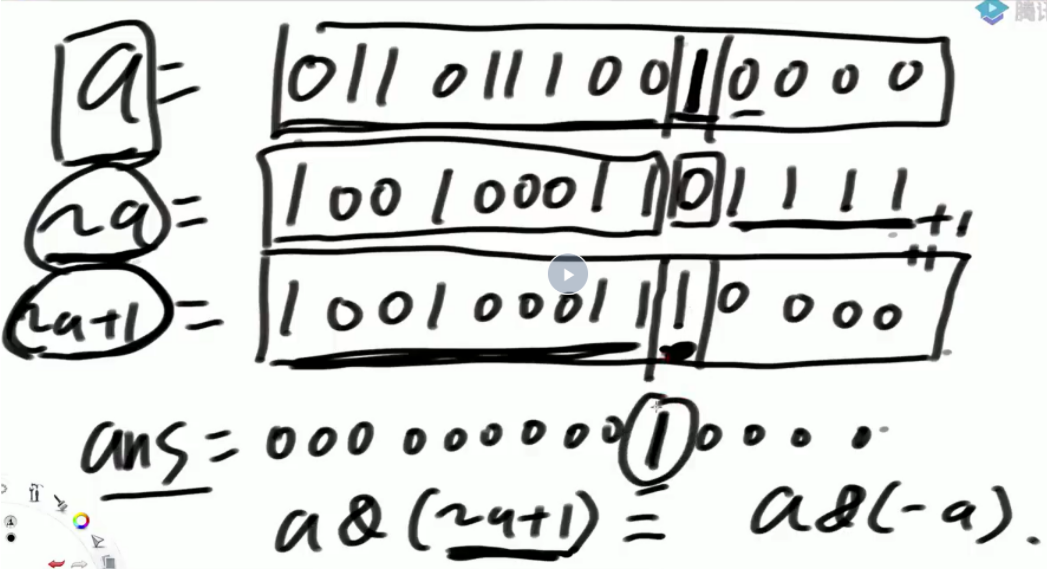 腾
a = 011011100 1 0000
~a = 100100011 0 1111 +1
~a+1 = 100100011 1 0000
ans = 000000000 1 0000
a & (~a+1) = a & (-a).